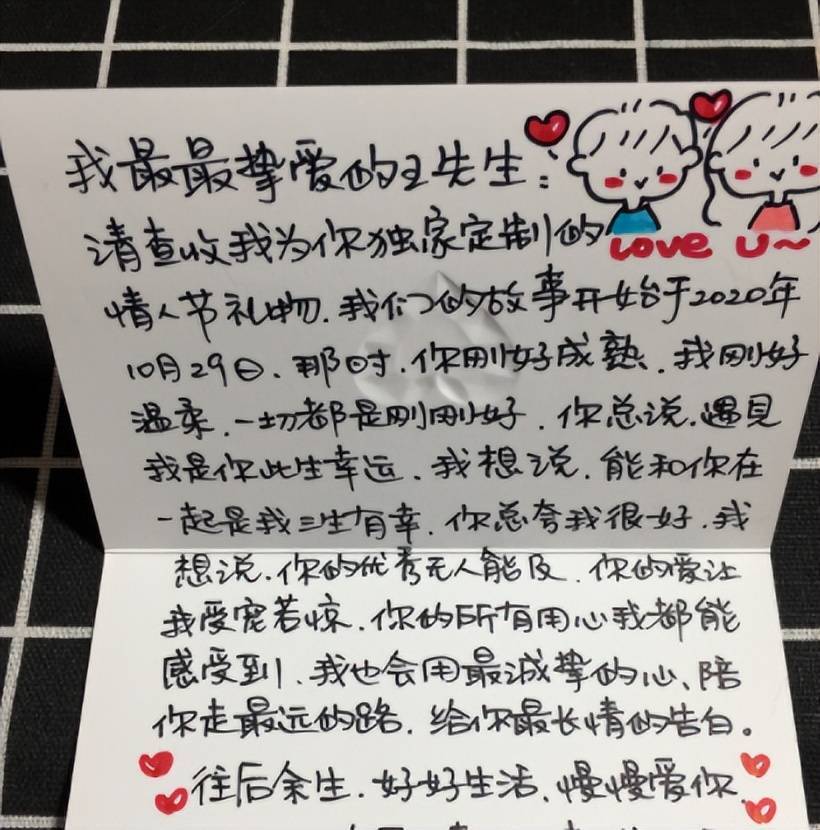 我最最挚爱的王先生:
请查收我为你独家定制的
Love U~
情人节礼物.我们的故事开始于2020年
10月29日、那时.你刚好成熟.我刚好
温柔.一切都是刚刚好.你总说.遇見
我是你此生幸运.我想说.能和你在
一起是我三生有幸.你总夸我很好.我
想说.你的优秀无人能及.你的爱让
我受宠若惊.你的所有用心我都能
感受到、我也会用最诚挚的心、陪
你走最远的路.给你最长情的告白。
往后余生.好好生活、慢慢爱你.